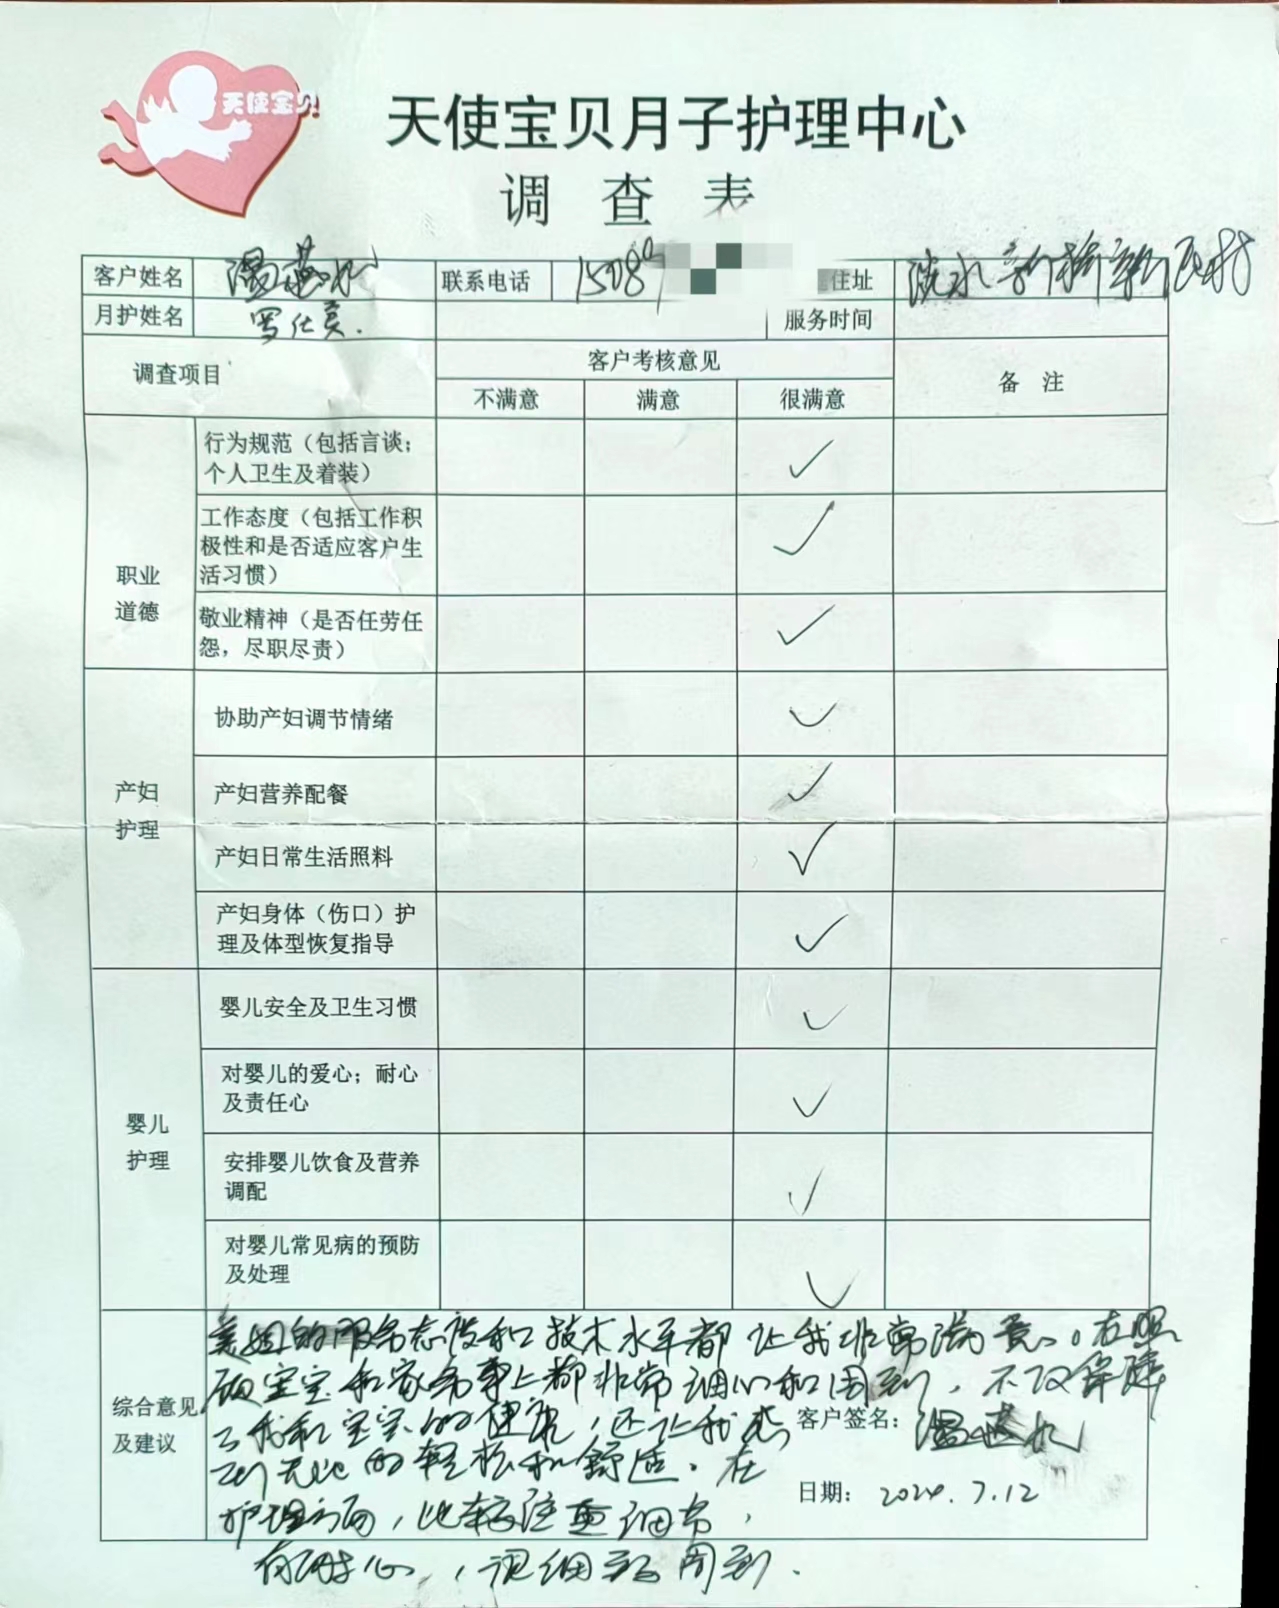 天使宝贝
天使宝贝月子护理中心
调 查 表
客户姓名 温燕 联系电话 15089 住址 淡水新桥新民村
月护姓名 罗仕美. 服务时间
调查项目 客户考核意见 备 注
不满意 满意 很满意
职业
道德
行为规范（包括言谈；
个人卫生及着装） ✓
工作态度（包括工作积
极性和是否适应客户生
活习惯） ✓
敬业精神（是否任劳任
怨，尽职尽责） ✓
产妇
护理
协助产妇调节情绪 ✓
产妇营养配餐 ✓
产妇日常生活照料 ✓
产妇身体（伤口）护
理及体型恢复指导 ✓
婴儿
护理
婴儿安全及卫生习惯 ✓
对婴儿的爱心；耐心
及责任心 ✓
安排婴儿饮食及营养
调配 ✓
对婴儿常见病的预防
及处理 ✓
综合意见
及建议
美姐的服务态度和技术水平都让我非常满意。在照
顾宝宝和家务事上都非常细心和周到，不仅保障
了我和宝宝的健康，还让我感
到无比的轻松和舒适。在
护理方面，比较注重细节，
有耐心，很细致周到.
客户签名： 温燕
日期： 2024.7.12